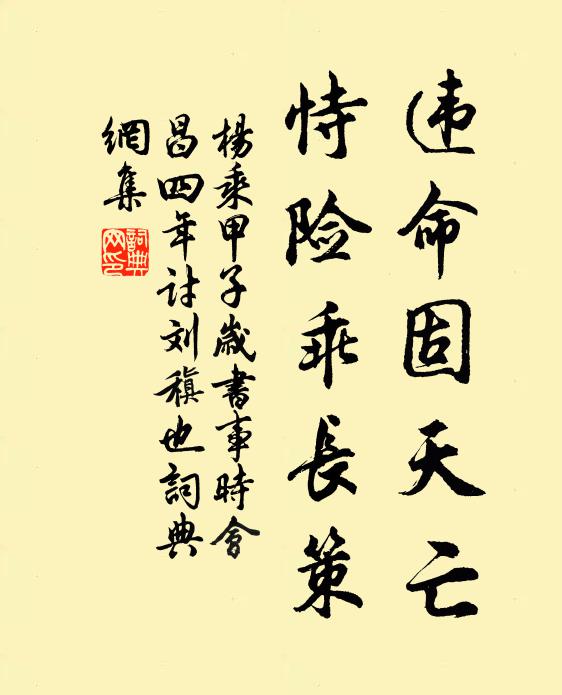 违命固天亡
恃险乖長策
楊乘甲子歲書事時會
昌四年討刘稹也詞典
網集
詞典
网印